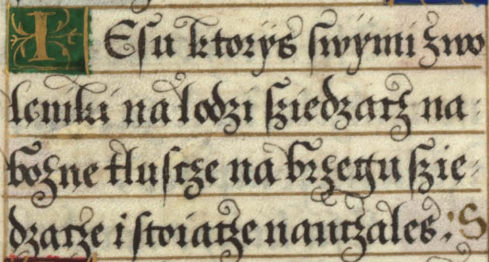 IEsu ktorys swymi zwo
leniki na lodzi sziedzacz na
bozne tluscze na brzegu szie
dzacze i stoiacze nauczales: S